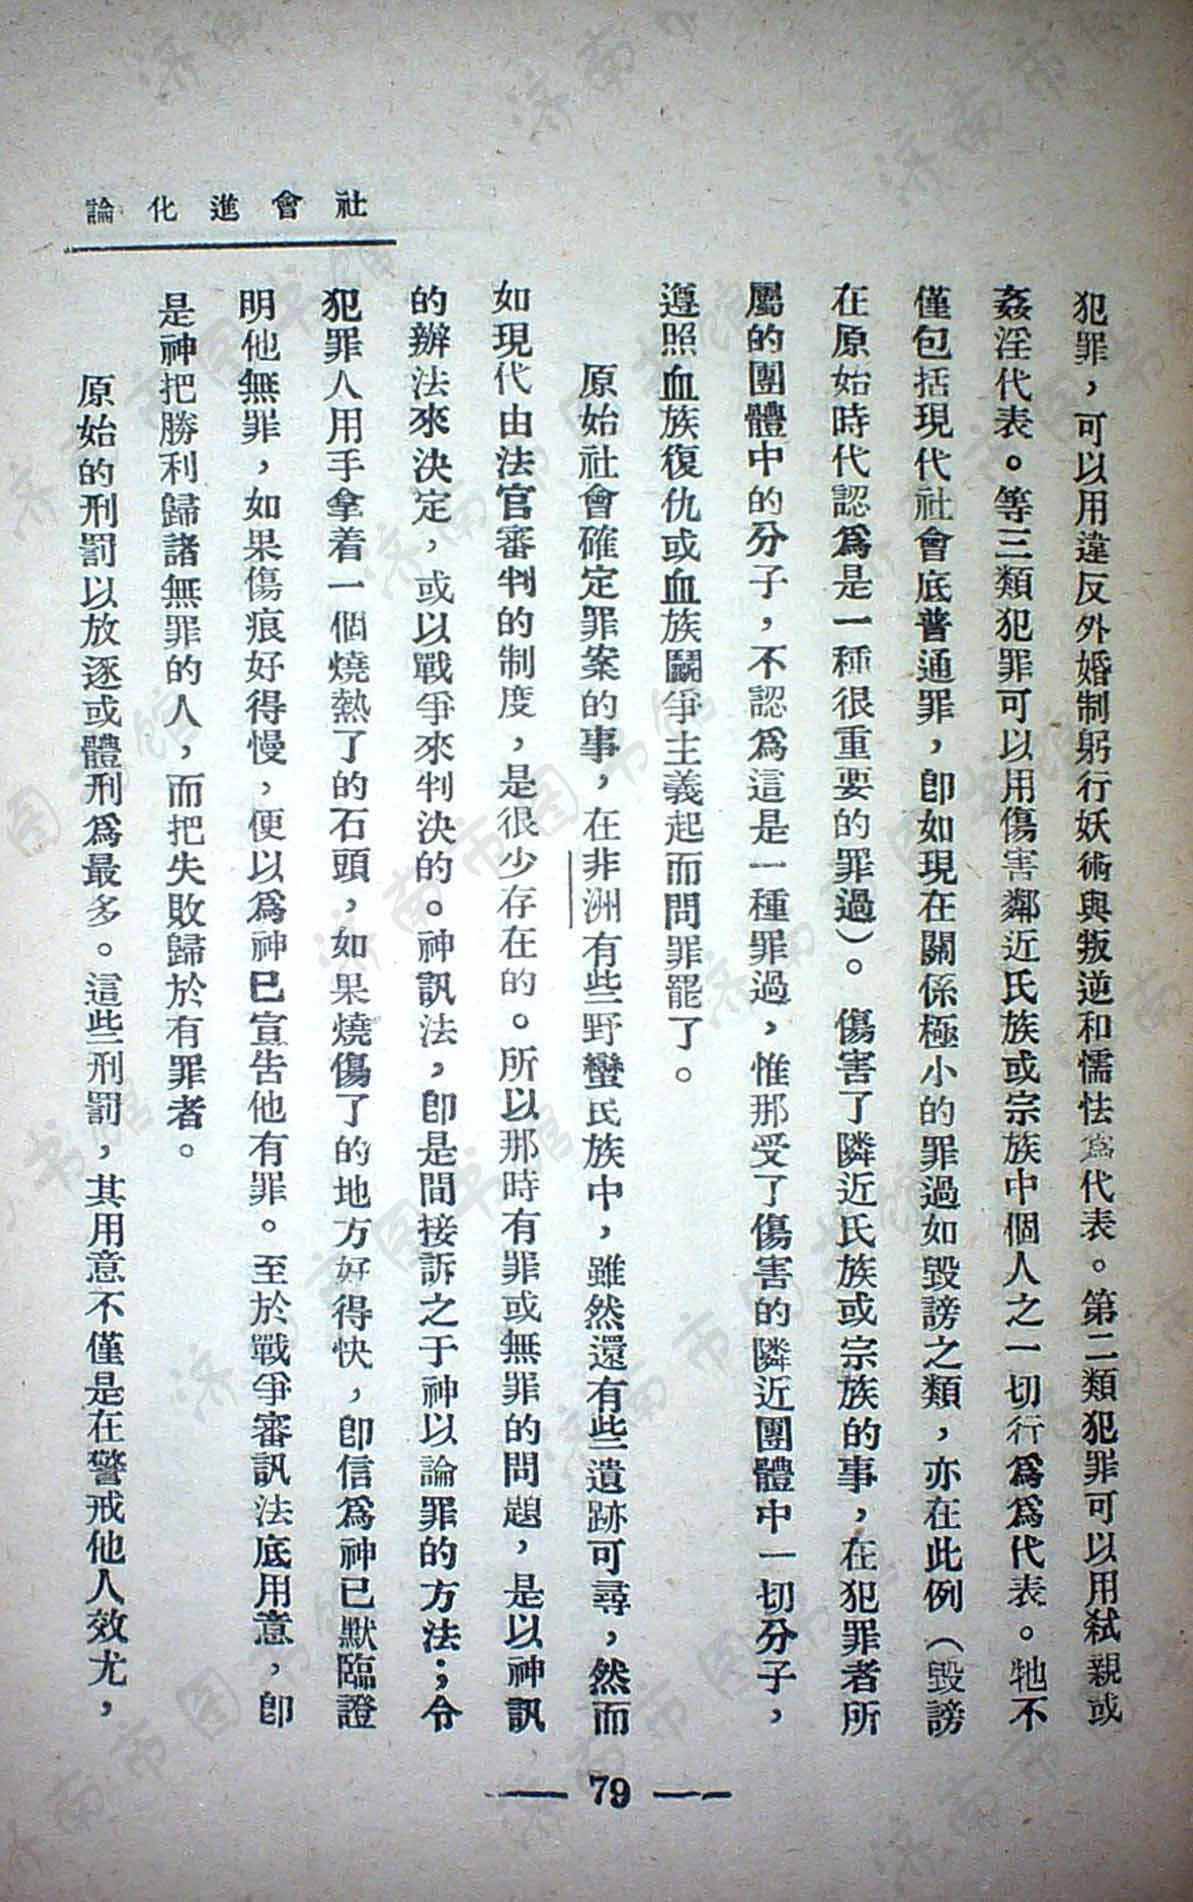 社會進化論
犯罪，可以用違反外婚制躬行妖術與叛逆和懦怯爲代表。第二類犯罪可以用弒親或
姦淫代表。等三類犯罪可以用傷害鄰近氏族或宗族中個人之一切行爲爲代表。牠不
僅包括現代社會底普通罪，卽如現在關係極小的罪過如毀謗之類，亦在此例（毀謗
在原始時代認爲是一種很重要的罪過）。傷害了隣近氏族或宗族的事，在犯罪者所
屬的團體中的分子，不認爲這是一種罪過，惟那受了傷害的隣近團體中一切分子，
遵照血族復仇或血族鬭爭主義起而問罪罷了。
原始社會確定罪案的事，在非洲有些野蠻氏族中，雖然還有些遺跡可尋，然而
如現代由法官審判的制度，是很少存在的。所以那時有罪或無罪的問題，是以神訊
的辦法來決定，或以戰爭來判決的。神訊法，卽是間接訴之于神以論罪的方法；令
犯罪人用手拿着一個燒熱了的石頭，如果燒傷了的地方好得快，卽信爲神已默臨證
明他無罪，如果傷痕好得慢，便以爲神已宣告他有罪。至於戰爭審訊法底用意，卽
是神把勝利歸諸無罪的人，而把失敗歸於有罪者。
原始的刑罰以放逐或體刑爲最多。這些刑罰，其用意不僅是在警戒他人效尤，
— 79 —
济南市图书馆